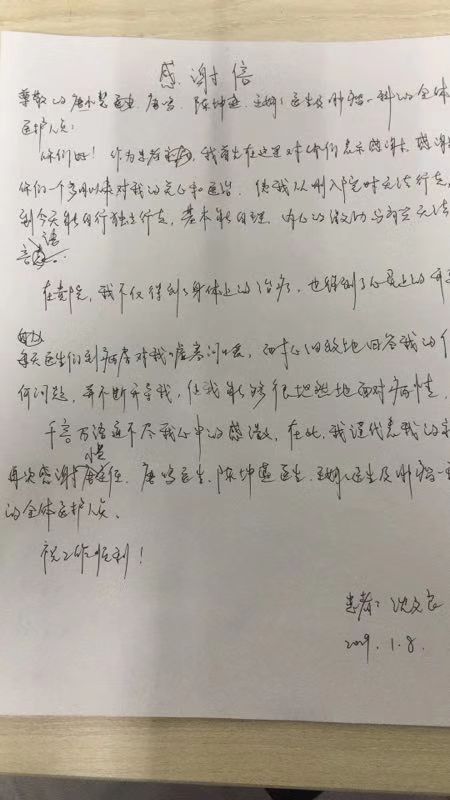 感谢信
尊敬的唐小慧医生、唐鸣、陈坤医生及肿瘤一科的全体
医护人员:
你们好!作为患者,我首先在这里对你们表示感谢,感谢
你们一个多月以来对我的关心和医治。使我从刚入院时无法行走,
到今天能自行独立行走,基本能自理。内心的激动与
言语
在贵院,我不仅得到了身体上的治疗,也得到了心灵上的
每天医生们到病房对我嘘寒问暖,细致地回答我的任
何问题,并不断开导我,使我能够很坦然地面对病情。
千言万语道不尽我心中的感激,在此,我谨代表我的家
再次感谢唐主任、唐鸣医生、陈坤医生、医生及肿瘤一
的全体医护人员。
祝工作顺利!
患者:沈文良
1.8.